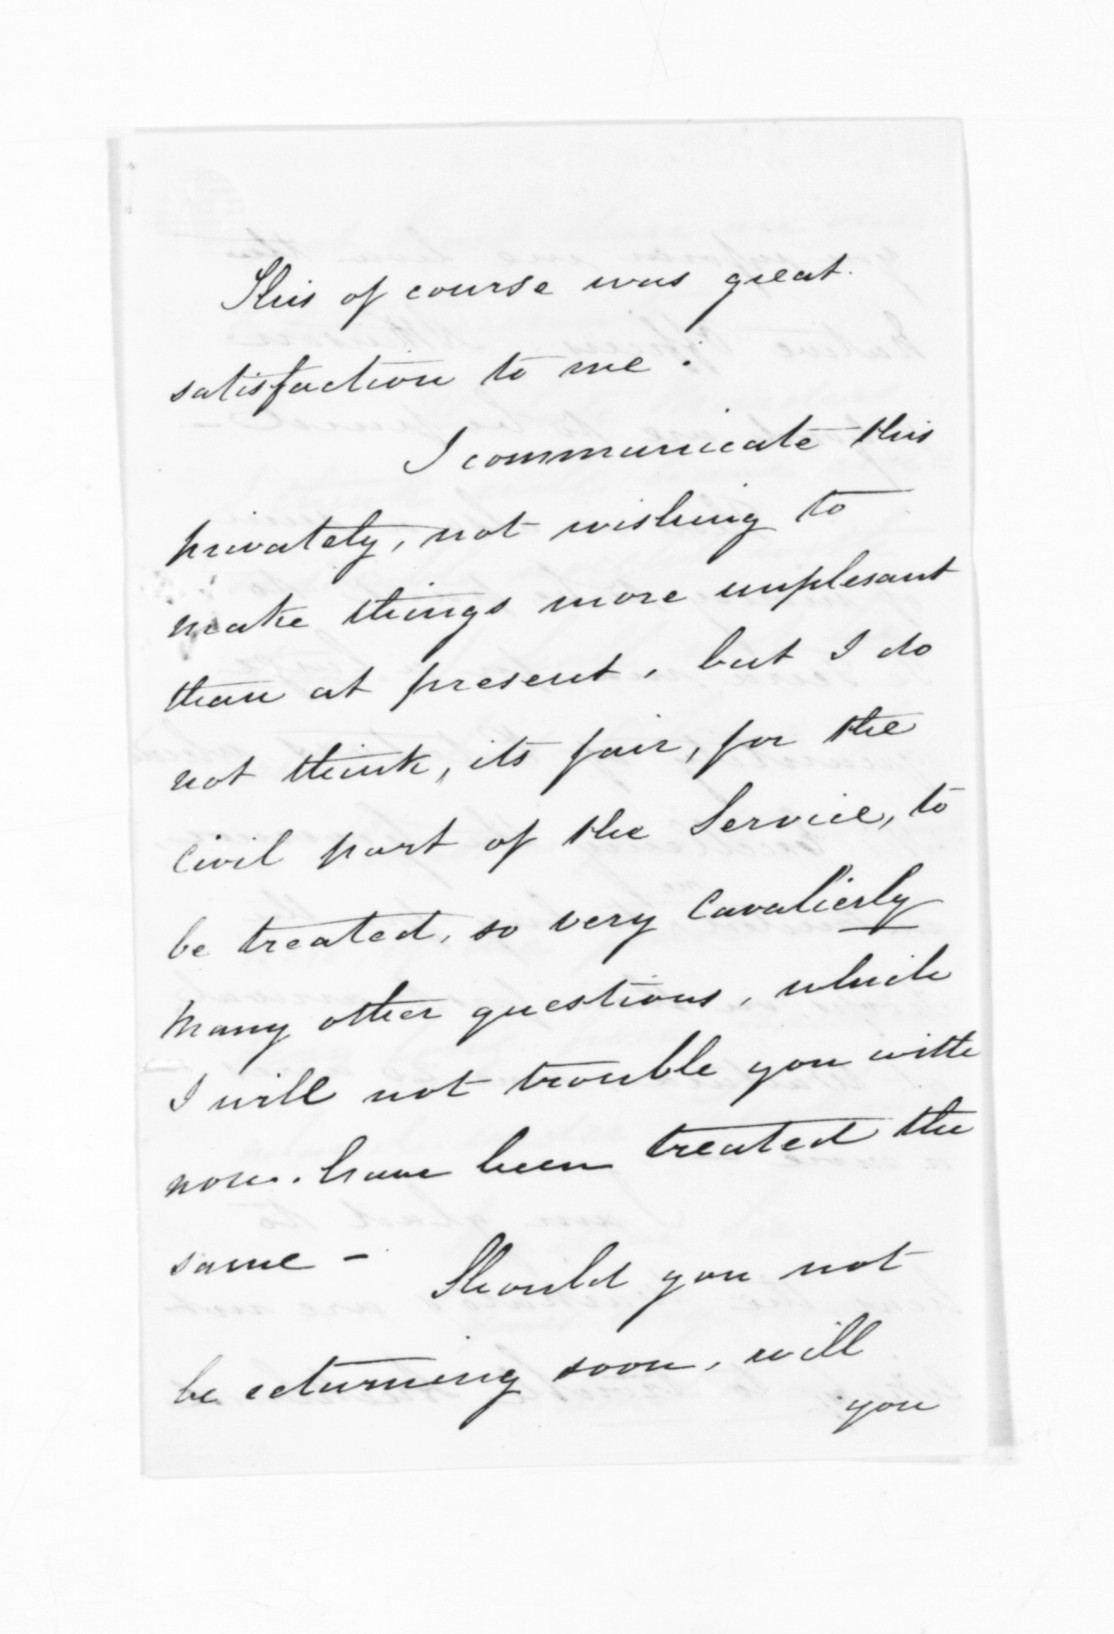 This of course was great
satisfaction to me.
I communicate this
privately, not wishing to
make things more unplesant
than at present, but I do
not think, its fair, for the
Civil part of the Service, to
be treated, so very Cavalierly
Many other questions, which
I will not trouble you with
now. have been treated the
same -
Should you not
be returning soon, will
you